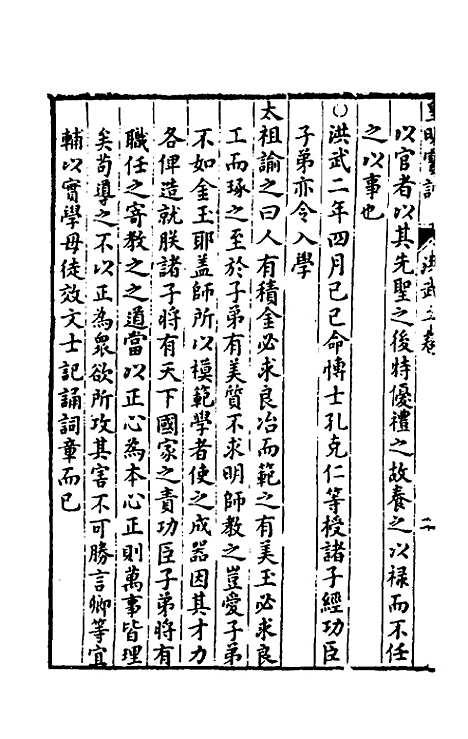 皇明寶訓
洪武二卷
二十
以官者以其先聖之後特優禮之故養之以祿而不任
之以事也
○洪武二年四月己巳命愽士孔克仁等授諸子經功臣
子弟亦令入學
太祖諭之曰人有積金必求良冶而範之有美玉必求良
工而琢之至於子弟有美質不求明師教之豈愛子弟
不如金玉耶盖師所以模範學者使之成器因其才力
各俾造就朕諸子將有天下國家之責功臣子弟將有
職任之寄教之之道當以正心為本心正則萬事皆理
矣茍導之不以正為衆欲所攻其害不可勝言卿等宜
輔以實學毋徒效文士記誦詞章而已